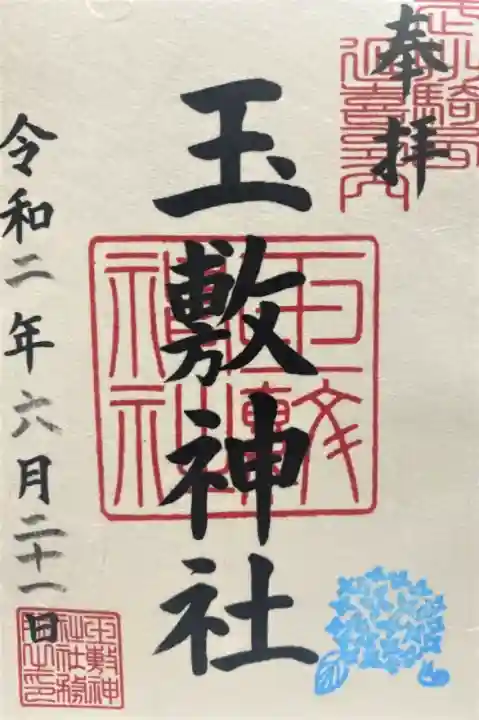 奉拝
玉敷神社
令和二年六月二十一日
玉敷神社
玉敷神社社務所之印